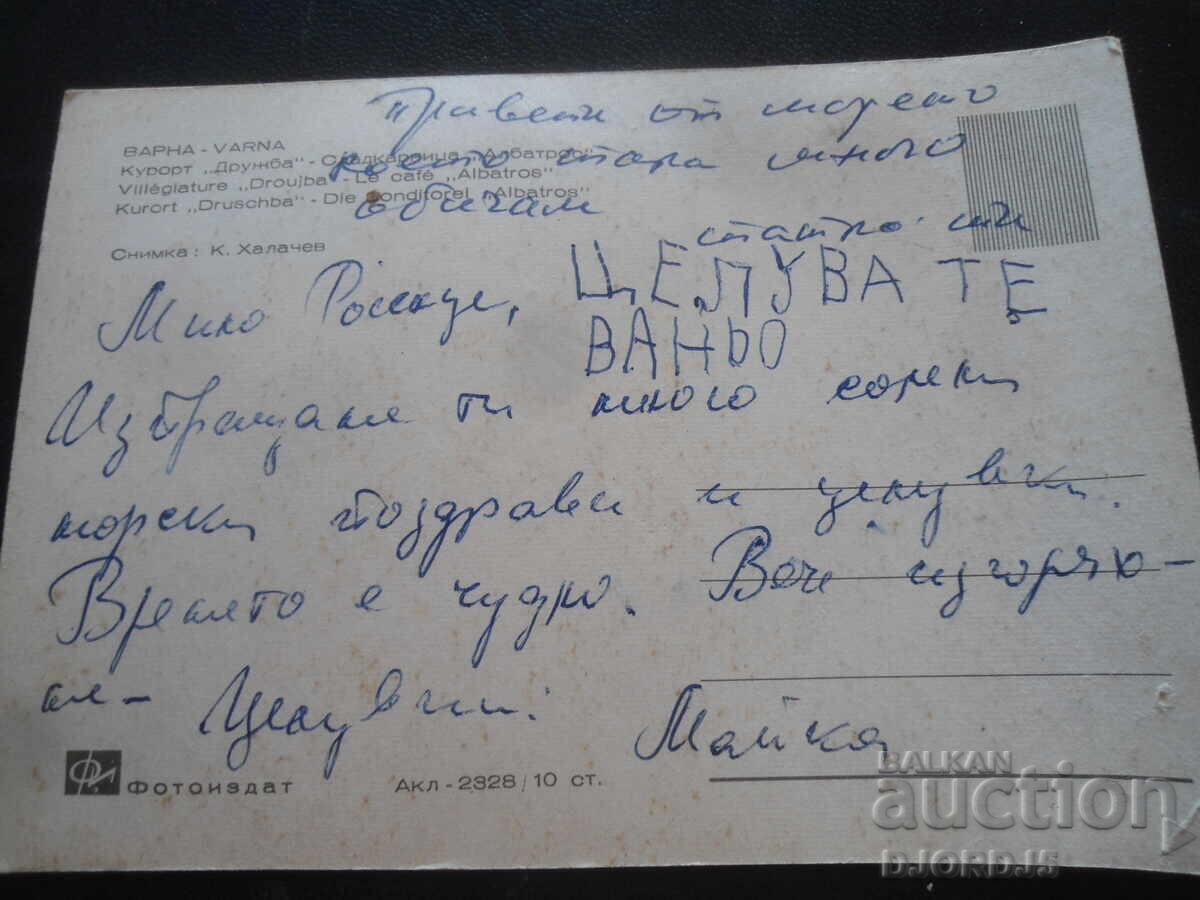 Привети от морето
което стара много
обичам
ВАРНА - VARNA
Курорт „Дружба" - Сладкарница „Албатрос"
Villégiature „Droujba" - Le café „Albatros"
Kurort „Druschba" - Die Konditorei „Albatros"
Снимка: К. Халачев
ти
ЦЕЛУВА ТЕ
ВАНЬО
Мило
Изпращаме ти много горещи
морски поздрави и целувки.
Времето е чудно. Вече изгоряхо-
ме - Целувки:
Майка
Фотоиздат
Акл - 2328/10 ст.
BALKAN
auction
DJORDJ5